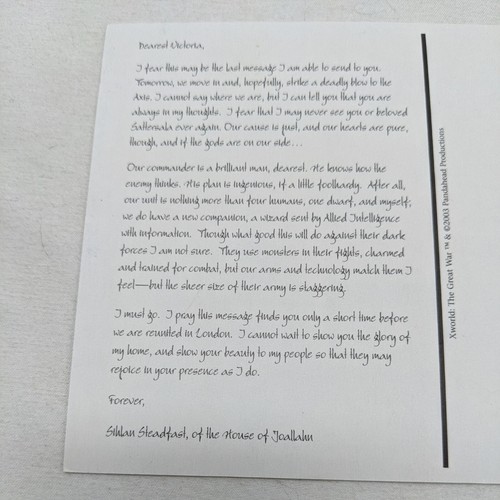 Dearest Victoria,
I fear this may be the last message I am able to send to you.
Tomorrow, we move in and, hopefully, strike a deadly blow to the
Axis. I cannot say where we are, but I can tell you that you are
always in my thoughts. I fear that I may never see you or beloved
Sattersala ever again. Our cause is just, and our hearts are pure,
though, and if the gods are on our side...
Our commander is a brilliant man, dearest. He knows how the
enemy thinks. His plan is ingenious, if a little foolhardy. After all,
our unit is nothing more than four humans, one dwarf, and myself;
we do have a new companion, a wizard sent by Allied Intelligence
with information. Though what good this will do against their dark
forces I am not sure. They use monsters in their fights, charmed
and trained for combat, but our arms and technology match them I
feel—but the sheer size of their army is staggering.
I must go. I pray this message finds you only a short time before
we are reunited in London. I cannot wait to show you the glory of
my home, and show your beauty to my people so that they may
rejoice in your presence as I do.
Forever,
Sihlan Steadfast, of the House of Joallahn
Xworld: The Great War ™ & ©2003 Pandahead Productions